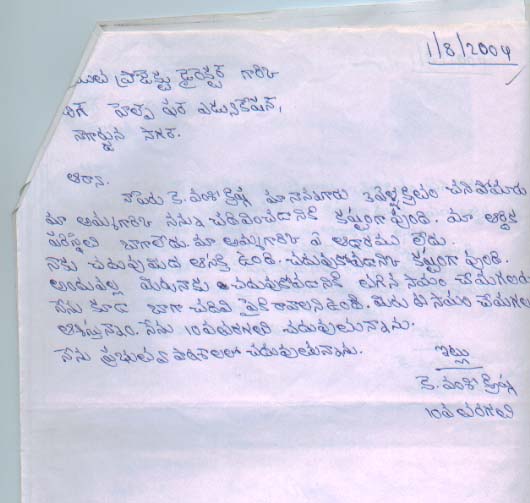 1/8/2004
ప్రాజెక్టు డైరెక్టర్ గారికి
హెల్ప్ ఫర్ ఎడ్యుకేషన్,
నాగార్జున నగర్.
ఆర్యా,
నా పేరు కె. వంశీక్రిష్ణ మా నాన్నగారు 3 ఏళ్ల క్రితం చనిపోయారు
మా అమ్మగారికి నన్ను చదివించడానికి కష్టంగా వుంది. మా ఆర్థిక
పరిస్థితి బాగాలేదు. మా అమ్మగారికి ఏ ఆధారము లేదు.
నాకు చదువుమీద ఆసక్తి ఉంది. చదువుకోవడానికి కష్టంగా వుంది.
అందువల్ల మీరు నాకు చదువుకోవడానికి తగిన సహాయం చేయగలరు
నేను కూడా బాగా చదివి పైకి రావాలని ఉంది. మీరు ఈ సహాయం
ఆశిస్తున్నాం. నేను 10వ తరగతి చదువుతున్నాను.
నేను ప్రభుత్వ పాఠశాలలో చదువుతున్నాను.
ఇట్లు
కె. వంశీ క్రిష్ణ
10వ తరగతి